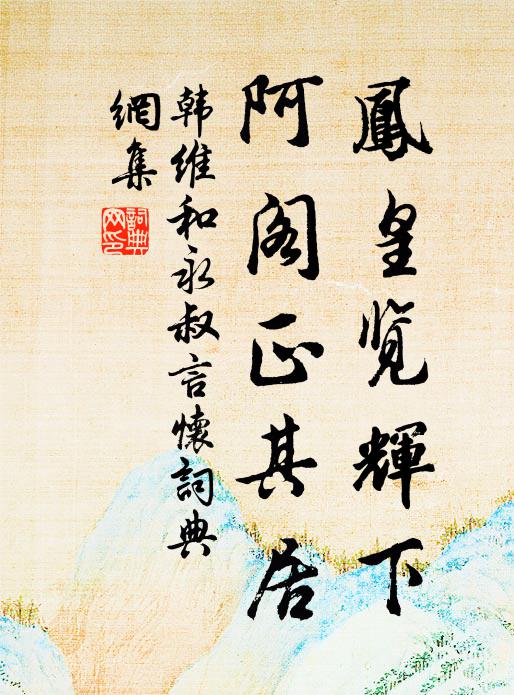 鳳皇览輝下
阿阁正其居
韩维和永叔言懷詞典
網集
詞典網印